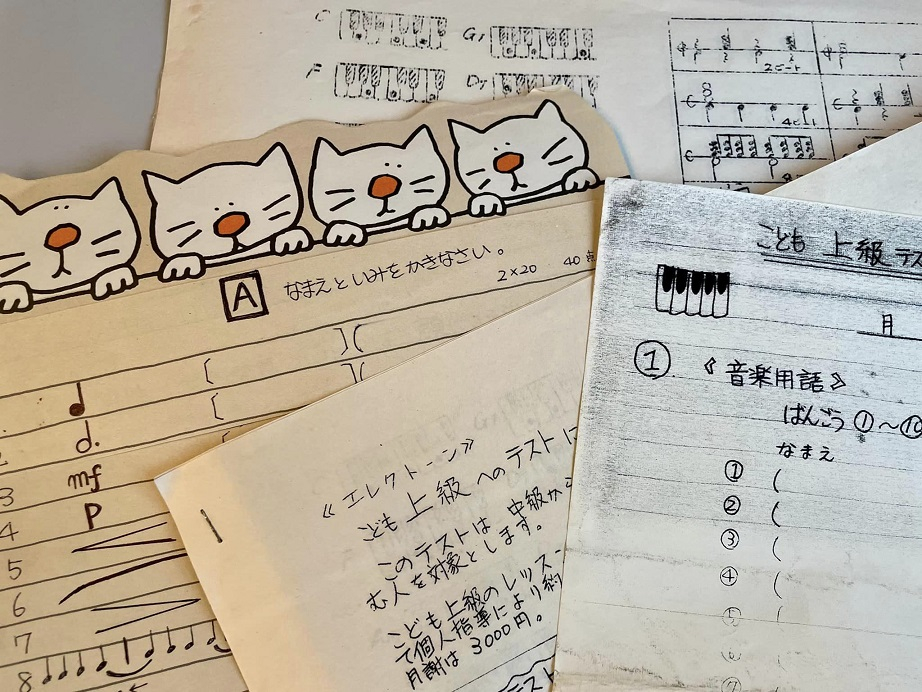 C
G7
F
D7
2ビート
4ビート
A なまえといみをかきなさい。
2×20 40点
mf
3
P
4
5
6
7
8
《エレクトーン》
こども上級へのテストに
このテストは 中級か
む人を対象とします。
こども上級のレッス
て個人指導により約
月謝は 3000円。
テスト
こども 上級 テス
月
① 《音楽用語》
ばんごう①〜⑩
なまえ
① (
② (
③ (
④ (
⑤ (
⑥ (
⑦ (